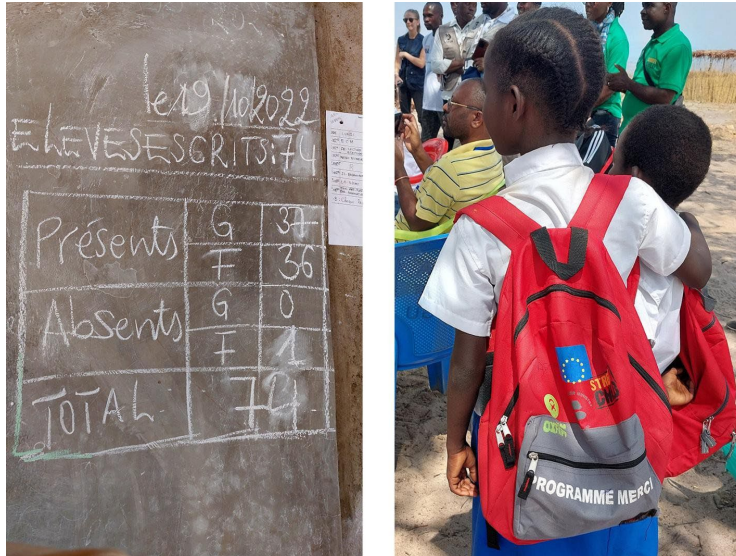 le 19/10/2022
ELEVES ESCRITS: 74
Présents G 37
F 36
Absents G 0
F 1
TOTAL 74
OXFAM
PROGRAMME MERCI